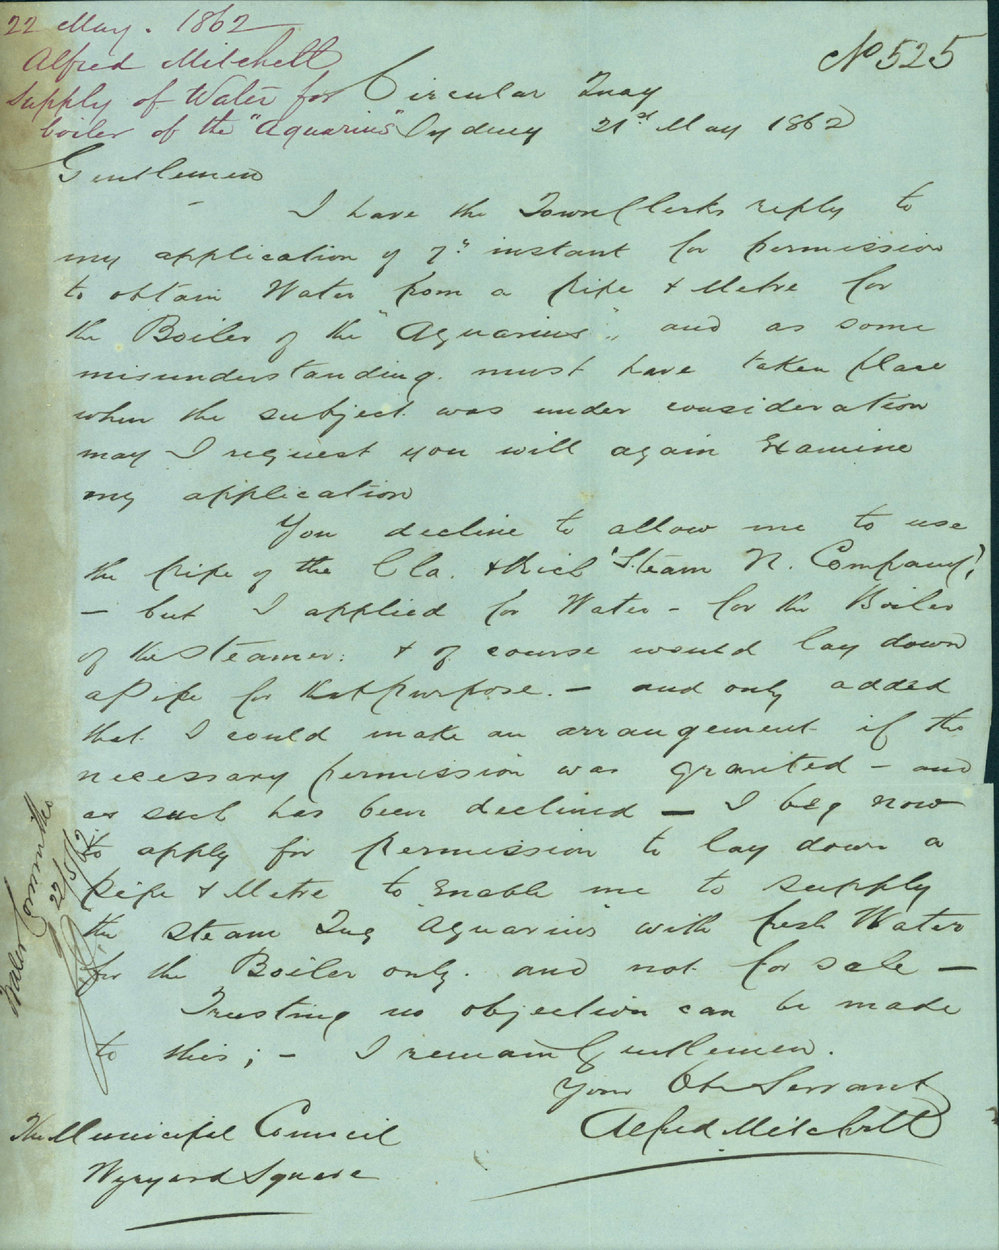 22 May. 1862
Alfred Mitchell
Supply of Water for
boiler of the "Aquarius"
No 525
Circular Quay
Sydney 21st May 1862
Gentlemen
I have the Town Clerks reply to
my application of 7th instant for permission
to obtain Water from a pipe & Metre for
the Boiler of the "Aquarius", and as some
misunderstanding must have taken place
when the subject was under consideration
may I request you will again Examine
my application
You decline to allow me to use
the pipe of the Cla. & Rich 'Steam N. Company'
- but I applied for Water - for the Boiler
of the Steamer: & of course would lay down
a Pipe for that purpose. - and only added
that I could make an arrangement if the
necessary permission was granted - and
as such has been declined - I beg now
to apply for permission to lay down a
pipe & Metre to Enable me to supply
the Steam Tug "Aquarius" with fresh Water
for the Boiler only. and not for sale -
Trusting no objection can be made
to this; - I remain Gentlemen.
Your Obt Servant
Alfred Mitchell
The Municipal Council
Wynyard Square
Water Committee
22/5/62